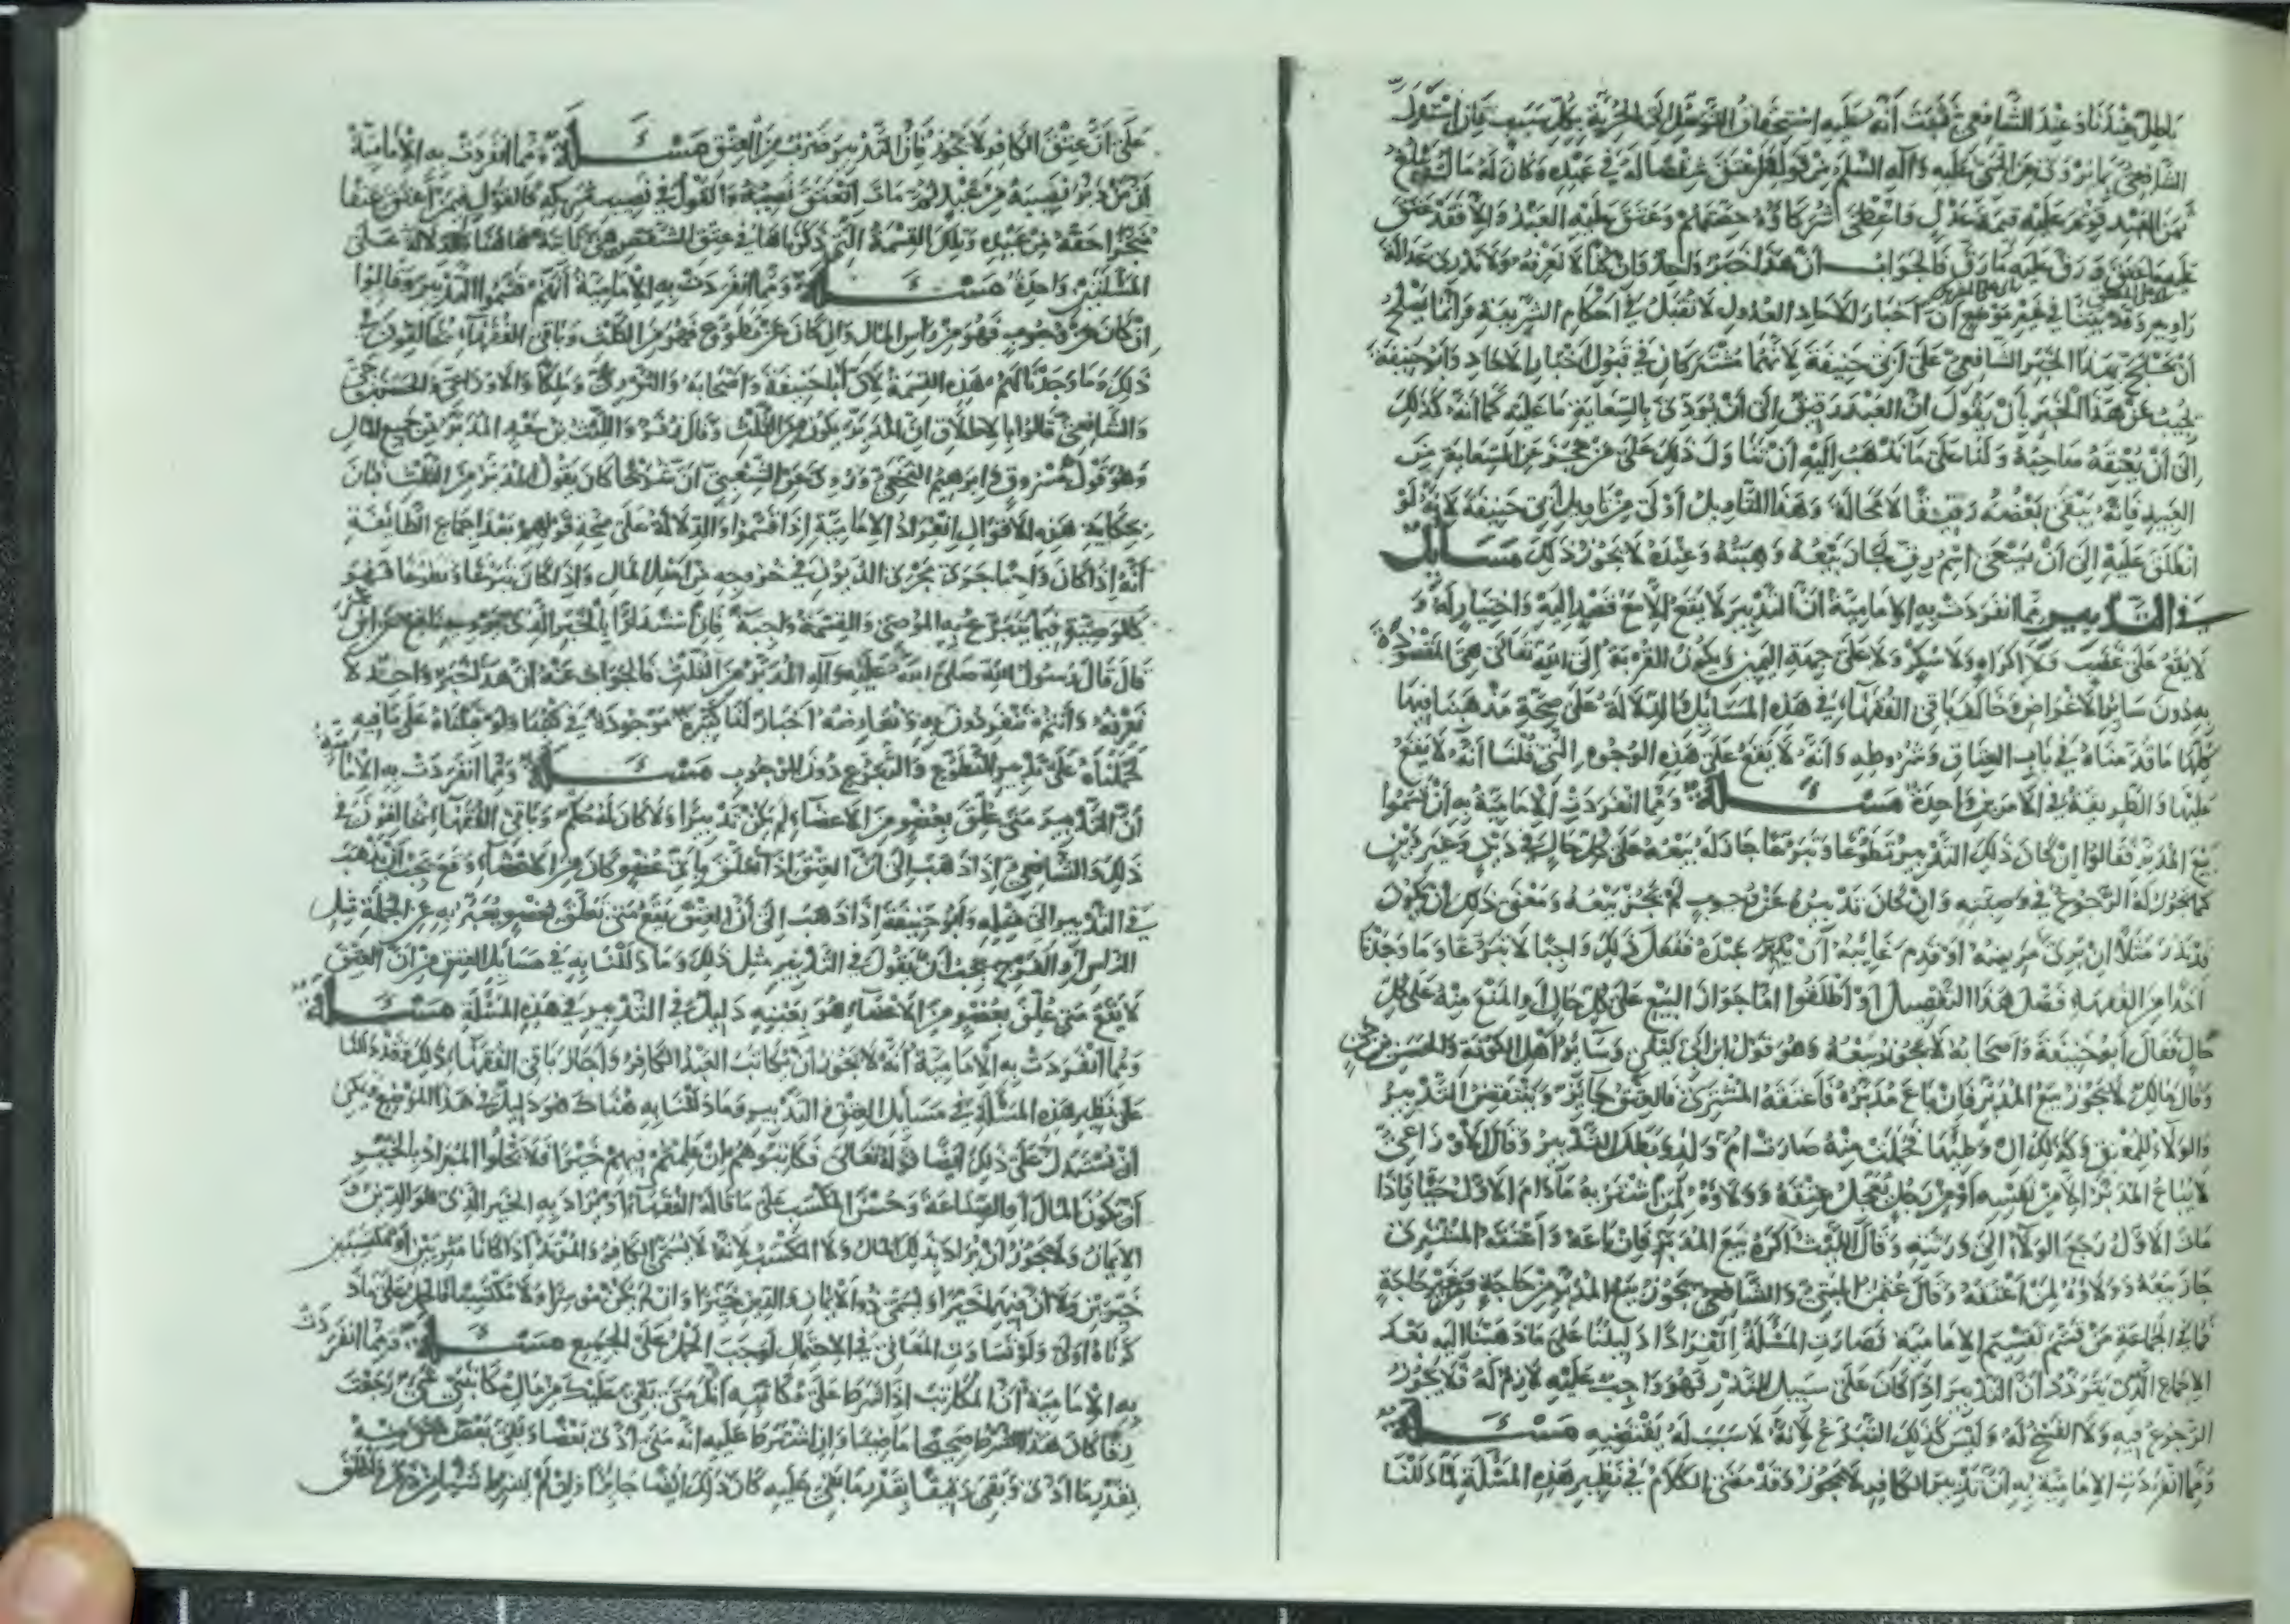 باطل عندنا وعند الشافعي فثبت أنه عليه استحقاق التوصل إلى الحرية بكل سبب فإن استدل
الشافعي بما يروى عن النبي عليه وآله السلم من قوله من أعتق شقصا له في عبد وكان له مال يبلغ
ثمن العبد قوم عليه قيمة عدل وأعطى شركاؤه حصصهم وعتق عليه العبد وإلا فقد عتق
عليه ما عتق ورق عليه ما رق فالجواب أن هذا خبر واحد فإن كنا لا نعرفه ولا ندري عدالة
راويه وقد بينا في غير موضع أن أخبار الآحاد العدول لا تقبل في أحكام الشريعة وإنما يصلح
أن يحتج بهذا الخبر الشافعي على أبي حنيفة لأنهما مشتركان في قبول أخبار الآحاد وأبو حنيفة
يجيب عن هذا الخبر بأن يقول ان العبد رقيق إلى أن يؤدى بالسعاية ما عليه كما أنه كذلك
إلى أن يعتقه صاحبه ولنا على ما نذهب إليه أن نتأول ذلك على من عجز عن السعاية من
العبيد فإنه يبقى بعضه رقيقا لا محالة وهذا التأويل أولى من تأويل أبي حنيفة لأنه لو
انطلق عليه إلى أن يستحق اسم رق لجاز بيعه وهبته وعنده لا يجوز ذلك مسائل
في التدبير مما انفردت به الإمامية أن التدبير لا يقع إلا مع قصد إليه واختيار له و
لا يقع على غضب ولا إكراه ولا سكر ولا على جهة اليمين ويكون القربة إلى الله تعالى هي المقصودة
به دون سائر الأغراض وخالف باقي الفقهاء في هذه المسائل والدلالة على صحة مذهبنا فيها
كلها ما قدمناه في باب العتاق وشروطه وأنه لا يقع على هذه الوجوه التي قلنا أنه لا يقع
عليها والطريقة في الأمرين واحدة مسئلة ومما انفردت الإمامية به أن قسموا
بيع المدبر فقالوا ان كان ذلك التدبير تطوعا وتبرعا جاز له بيعه على كل حال في دين وغير دين
كما يجوز له الرجوع في وصيته وان كان تدبيره عن وجوب لم يجز بيعه ومعنى ذلك ان يكون
قد نذر مثلا ان برئ مريضه او قدم غائبه ان يدبر عبده ففعل ذلك واجبا لا تبرعا وما وجدنا
أحدا من الفقهاء فصل هذا التفصيل بل أطلقوا اما جواز البيع على كل حال أو المنع منه على كل
حال فقال أبو حنيفة وأصحابه لا يجوز بيعه وهو قول ابن أبي ليلى وسائر أهل الكوفة والحسن بن حي
وقال مالك لا يجوز بيع المدبر فان باع مدبره فأعتقه المشتري فالعتق جائز وينتقض التدبير
والولاء للمعتق وكذلك ان وطئها فحملت منه صارت أم ولد وبطل التدبير وقال الأوزاعي
لا يباع المدبر إلا من نفسه أو من رجل يعجل عتقه وولاؤه لمن اشتراه ما دام الأول حيا فإذا
مات الأول رجع الولاء إلى ورثته وقال الليث اكره بيع المدبر فان باعه وأعتقه المشتري
جاز بيعه وولاؤه لمن أعتقه وقال عثمن البتي والشافعي يجوز بيع المدبر من حاجة وغير حاجة
فما في الجماعة من قسم تقسيم الإمامية فصارت المسئلة انفرادا دليلنا على ما ذهبنا إليه بعد
الإجماع الذي يتردد أن التدبير إذا كان على سبيل النذر فهو واجب عليه لازم له فلا يجوز
الرجوع فيه ولا الفسخ له وليس كذلك التبرع لأنه لا سبب له يقتضيه مسئلة
ومما انفردت الإمامية به ان تدبير الكافر لا يجوز وقد مضى الكلام في نظير هذه المسئلة لما دللنا
على أن عتق الكافر لا يجوز فان التدبير ضرب من العتق مسئلة ومما انفردت به الإمامية
أن من دبر نصيبه من عبد ثم مات انعتق نصيبه والقول في نصيب شريكه كالقول فيمن أعتق عتقا
منجزا حقه من عبد وتلك القسمة التي ذكرناها في عتق الشقص هي ثابتة هاهنا والدلالة على
المسئلتين واحدة مسئلة ومما انفردت به الإمامية أنهم قسموا التدبير وقالوا
ان كان عن وجوب فهو من رأس المال وان كان عن تطوع فهو من الثلث وباقي الفقهاء يخالفون في
ذلك وما وجدنا لهم هذه القسمة لأن أبا حنيفة وأصحابه والثوري ومالكا والأوزاعي والحسن بن حي
والشافعي قالوا بالاطلاق ان المدبر يكون من الثلث وقال زفر والليث بن سعد المدبر من جميع المال
وهو قول مسروق وابرهيم النخعي وروي عن الشعبي ان شريحا كان يقول المدبر من الثلث فبان
بحكاية هذه الأقوال انفراد الإمامية إذا قسموا والدلالة على صحة قولهم بعد إجماع الطائفة
أنه إذا كان واجبا جرى مجرى الديون في خروجه من أصل المال وإذا كان تبرعا وتطوعا فهو
كالوصية فيما يتبرع به الموصي والقسمة واجبة فان استدلوا بالخبر الذي يرويه نافع عن ابن عمر
قال قال رسول الله صلى الله عليه وآله المدبر من الثلث فالجواب عنه ان هذا خبر واحد لا
نعرفه وأنتم تنفردون به وتعارضه أخبار لنا كثيرة موجودة في كتبنا ولو قبلناه على ما فيه
لحملناه على تدبير التطوع والتبرع دون الوجوب مسئلة ومما انفردت به الإمامية
أن التدبير متى علق بعضو من الأعضاء لم يكن تدبيرا ولا كان له حكم وباقي الفقهاء يخالفون في
ذلك والشافعي إذا ذهب إلى أن العتق إذا علق بأي عضو كان من الأعضاء وقع يجب أن يذهب
في التدبير إلى مثله وأبو حنيفة إذا ذهب إلى أن العتق يقع متى تعلق بعضو يعبر به عن الجملة مثل
الرأس أو الفرج يجب أن يقول في التدبير مثل ذلك وما دللنا به في مسائل العتق من ان العتق
لا يقع متى علق بعضو من الأعضاء هو بعينه دليل في التدبير في هذه المسئلة مسئلة
ومما انفردت به الإمامية أنه لا يجوز أن يكاتب العبد الكافر وأجاز باقي الفقهاء ذلك وقد دللنا
على نظير هذه المسئلة في مسائل العتق والتدبير وما دللنا به هناك هو دليل في هذا الموضع يمكن
أن يستدل على ذلك أيضا قوله تعالى فكاتبوهم ان علمتم فيهم خيرا فلا يخلوا المراد بالخير
أن يكون المال أو الصناعة وحسن التكسب على ما قاله الفقهاء أو يراد به الخير الذي هو الدين و
الإيمان ولا يجوز أن يراد بذلك المال ولا المكسب لأنه لا يسمى الكافر والمرتد إذا كانا موسرين أو مكتسبين
خيرين ولا ان فيهما خيرا ويسمى ذو الإيمان والدين خيرا وان لم يكن موسرا ولا مكتسبا فالحمل على ما
ذكرناه أولى ولو تساوت المعاني في الاحتمال لوجب الحمل على الجميع مسئلة ومما انفردت
به الإمامية أن المكاتب إذا شرط على مكاتبه انك متى بقي عليك من مال مكاتبتي شيء رجعت
رقا كان هذا الشرط صحيحا ماضيا وان اشترط عليه انه متى أدى بعضا وبقي بعض عتق منه
بقدر ما أدى وبقي رقيقا بقدر ما بقي عليه كان ذلك أيضا جائزا وان لم يشرط شيئا من ذلك وأطلق